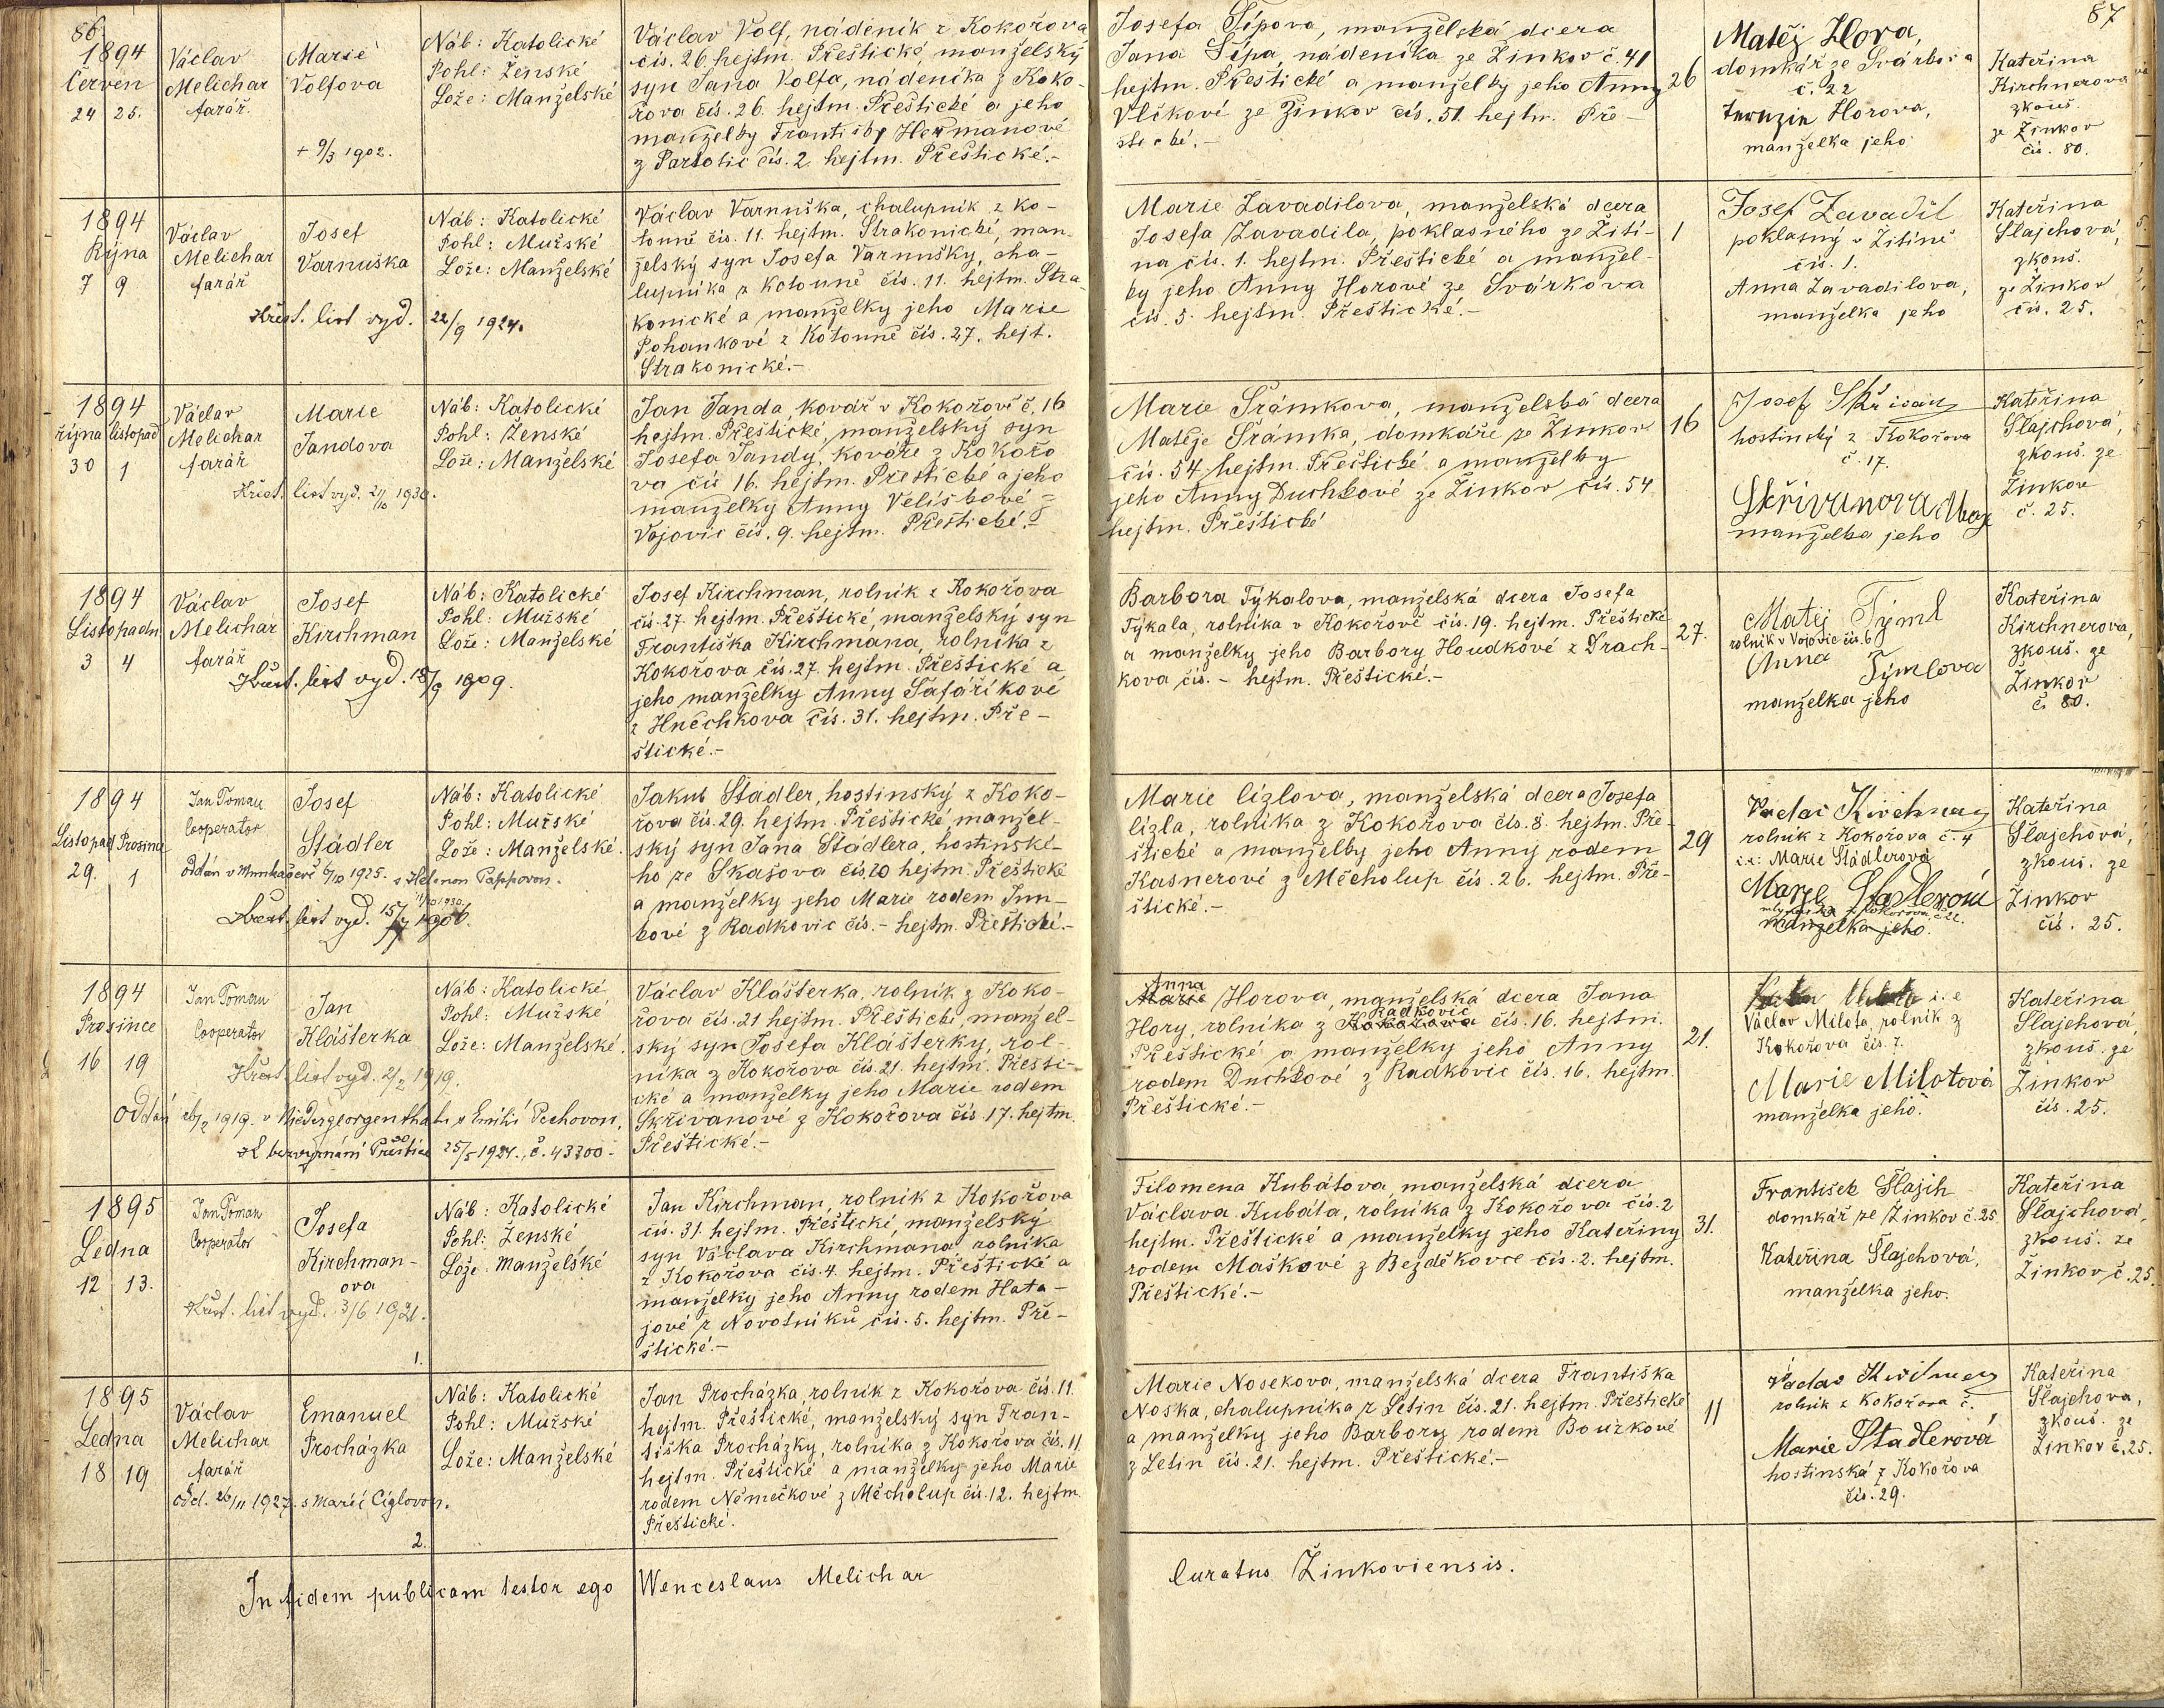 86.
1894
Červen
24 25.
Václav
Melichar
farář
Marie
Volfova
+ 9/3 1902.
Náb: Katolické
Pohl: Ženské
Lože: Manželské
Václav Volf, nádeník z Kokořova
čís. 26 hejtm. Přeštické, manželský
syn Jana Volfa, nádeníka z Koko-
řova čís. 26. hejtm. Přeštické a jeho
manželky Františky Heřmanové
z Partotic čís. 2. hejtm. Přeštické.-
1894
Října
7 9
Václav
Melichar
farář
Josef
Varnuška
Křest. list vyd. 22/9 1924.
Náb: Katolické
Pohl: Mužské
Lože: Manželské
Václav Varnuška, chalupník z Ko-
touně čís. 11. hejtm. Strakonické, man-
želský syn Josefa Varnušky, cha-
lupníka z Kotouně čís. 11. hejtm. Stra-
konické a manželky jeho Marie
Pohankové z Kotouně čís. 27. hejt.
Strakonické.-
1894
října listopad
30 1
Václav
Melichar
farář
Marie
Jandova
Křest. list vyd. 1930.
Náb: Katolické
Pohl: Ženské
Lože: Manželské
Jan Janda, kovář v Kokořově č. 16
hejtm. Přeštické, manželský syn
Josefa Jandy, kováře z Kokořo
va čís 16. hejtm. Přeštické a jeho
manželky Anny Velíškové z
Vojovic čís. 9. hejtm. Přeštické.-
1894
Listopadu
3 4
Václav
Melichar
farář
Josef
Kirchman
Křest. list vyd. 18/9 1909.
Náb: Katolické
Pohl: Mužské
Lože: Manželské
Josef Kirchman, rolník z Kokořova
čís. 27. hejtm. Přeštické, manželský syn
Františka Kirchmana, rolníka z
Kokořova čís. 27. hejtm. Přeštické a
jeho manželky Anny Šafaříkové
z Hněchkova čís. 31. hejtm. Pře-
štické.-
1894
Listopad Prosince
29. 1
Jan Toman
Cooperator
Josef
Städler
oddán v Munkačevě 6/10 1925. s Helenou Pappovou.
Křest. list vyd. 15/7 1906.
Náb: Katolické
Pohl: Mužské
Lože: Manželské.
Jakub Städler, hostinský z Koko-
řova čís. 29. hejtm. Přeštické, manžel-
ský syn Jana Städlera, hostinské-
ho ze Skašova čís. 20 hejtm. Přeštické
a manželky jeho Marie rodem Jun-
kové z Radkovic čís. - hejtm. Přeštické.-
1894
Prosince
16 19
Jan Toman
Cooperator
Jan
Klášterka
Křest. list vyd. 2/2 1919.
Oddán 26/2 1919. v Niedergeorgenthalu s Emilií Pechovou,
25/5 1924., č. 43300-
Náb: Katolické
Pohl: Mužské
Lože: Manželské.
Václav Klášterka, rolník z Koko-
řova čís. 21 hejtm. Přeštické, manžel-
ský syn Josefa Klášterky, rol-
níka z Kokořova čís. 21. hejtm. Přešti-
cké a manželky jeho Marie rodem
Skřivanové z Kokořova čís 17. hejtm.
Přeštické.-
1895
Ledna
12 13.
Jan Toman
Cooperator
Josefa
Kirchman-
ova
Křest. list vyd. 3/6 1921.
1.
Náb: Katolické
Pohl: Ženské
Lože: Manželské
Jan Kirchman, rolník z Kokořova
čís. 31. hejtm. Přeštické, manželský
syn Václava Kirchmana, rolníka
z Kokořova čís. 4. hejtm. Přeštické a
manželky jeho Anny rodem Hata-
jové z Novotníků čís. 5. hejtm. Pře-
štické.-
1895
Ledna
18 19
Václav
Melichar
farář
Emanuel
Procházka
odd. 26/11 1927. s Marií Cíglovou.
2.
Náb: Katolické
Pohl: Mužské
Lože: Manželské
Jan Procházka, rolník z Kokořova čís. 11.
hejtm. Přeštické, manželský syn Fran-
tiška Procházky, rolníka z Kokořova čís. 11
hejtm. Přeštické a manželky jeho Marie
rodem Němečkové z Měcholup čís. 12. hejtm
Přeštické.
In fidem publicam testor ego Wenceslaus Melichar
87
Josefa Šípova, manželská dcera
Jana Šípa, nádeníka ze Žinkov č. 41
hejtm. Přeštické a manželky jeho Anny
Vlčkové ze Žinkov čís. 51. hejtm. Pře-
štické.-
26
Matěj Hora,
domkář ze Svárkova
č. 22
Terezie Horova,
manželka jeho
Kateřina
Kirchnerova
zkouš.
ze Žinkov
čís. 80.
Marie Zavadilova, manželská dcera
Josefa Zavadila, poklasného ze Žití-
na čís. 1. hejtm. Přeštické a manžel-
ky jeho Anny Horové ze Svárkova
čís. 5. hejtm. Přeštické.-
1
Josef Zavadil
poklasný v Žitíně
čís. 1.
Anna Zavadilova,
manželka jeho
Kateřina
Slajchová,
zkouš.
ze Žinkov
čís. 25.
Marie Šrámkova, manželská dcera
Matěje Šrámka, domkáře ze Žinkov
čís. 54 hejtm. Přeštické a manželky
jeho Anny Duchkové ze Žinkov čís. 54
hejtm. Přeštické
16
Josef Skřivan
hostinský z Kokořova
č. 17.
Skřivanova
manželka jeho
Kateřina
Slajchová,
zkouš. ze
Žinkov
č. 25.
Barbora Týkalova, manželská dcera Josefa
Týkala, rolníka v Kokořově čís. 19. hejtm. Přeštické
a manželky jeho Barbory Houdkové z Drach-
kova čís. - hejtm. Přeštické.-
27.
Matěj Týml
rolník v Vojovic čís. 6
Anna Týmlova
manželka jeho
Kateřina
Kirchnerova,
zkouš. ze
Žinkov
č. 80.
Marie Cízlova, manželská dcera Josefa
Cízla, rolníka z Kokořova čís. 8. hejtm. Pře-
štické a manželky jeho Anny rodem
Kasnerové z Měcholup čís. 26. hejtm. Pře-
štické.-
29
Václav Kirchman
rolník z Kokořova č. 4
i.e: Marie Städlerová
Marie Stadlerová
manželka jeho.
Kateřina
Slajchová,
zkouš. ze
Žinkov
čís. 25.
Anna
Marie Horová, manželská dcera Jana
Radkovic
Hory, rolníka z Kokořova čís. 16. hejtm.
Přeštické a manželky jeho Anny
rodem Duchkové z Radkovic čís. 16. hejtm.
Přeštické.-
21.
i. e
Václav Milota, rolník z
Kokořova čís. 7.
Marie Milotová
manželka jeho.
Kateřina
Slajchová,
zkouš. ze
Žinkov
čís. 25.
Filomena Kubátova, manželská dcera
Václava Kubáta, rolníka z Kokořova čís. 2
hejtm. Přeštické a manželky jeho Kateřiny
rodem Maškové z Bezděkovce čís. 2. hejtm.
Přeštické.-
31.
František Šlajch
domkář ze Žinkov č. 25
Kateřina Šlajchová,
manželka jeho.
Kateřina
Slajchová,
zkouš. ze
Žinkov č. 25.
Marie Nosekova, manželská dcera Františka
Noska, chalupníka z Letin čís. 21. hejtm. Přeštické
a manželky jeho Barbory rodem Bouzkové
z Letin čís. 21. hejtm. Přeštické.-
11
Václav Kirchman
rolník z Kokořova č.
Marie Stadlerová
hostinská z Kokořova
čís. 29.
Kateřina
Slajchova,
zkouš. ze
Žinkov č. 25.
Curatus Žinkoviensis.